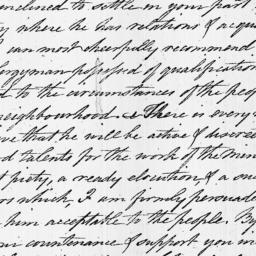 inclined to settle in your part
where he has relations & acqua
I can most cheerfully recommend
lergyman possessed of qualification
d to the circumstances of the peop
neighbourhood. & There is every
ve that he will be active & discree
d talents for the work of the Minis
t piety, a ready elocution, & a sou
rs which, I am firmly persuaded
him acceptable to the people. By
countenance & support you w